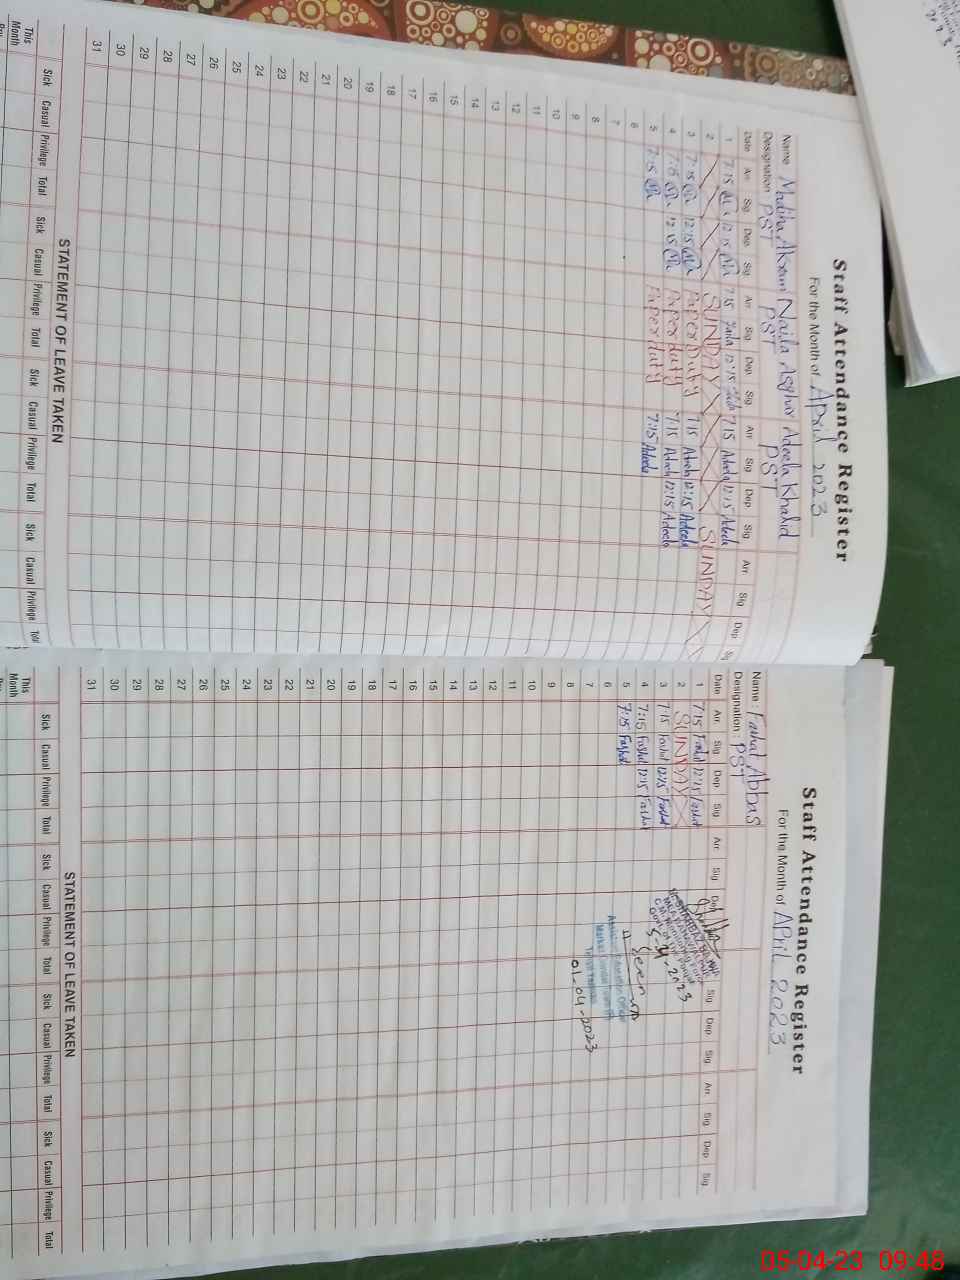 Staff Attendance Register
For the Month of April 2023
Name Madiha Akram Naila Asghar Adeela Khalid
Designation PST PST PST
Date Arr Sig Dep Sig Arr Sig Dep Sig Arr Sig Dep Sig Arr Sig Dep Sig
1 7:15 12:15 7:15 Naila 12:15 7:15 Adeela 12:15 Adeela
2 SUNDAY SUNDAY
3 7:15 12:15 Paper Duty 7:15 Adeela 12:15 Adeela
4 7:15 12:15 Paper duty 7:15 Adeela 12:15 Adeela
5 7:15 Paper duty 7:15 Adeela
6
7
8
9
10
11
12
13
14
15
16
17
18
19
20
21
22
23
24
25
26
27
28
29
30
31
STATEMENT OF LEAVE TAKEN
Sick Casual Privilege Total Sick Casual Privilege Total Sick Casual Privilege Total Sick Casual Privilege Total
This Month
Staff Attendance Register
For the Month of April 2023
Name : Farhat Abbas
Designation : PST
Date Arr. Sig Dep Sig Arr. Sig Dep Sig Dep Sig Arr. Sig Dep Sig
1 7:15 Farhat 12:15 Farhat
2 SUNDAY
3 7:15 Farhat 12:15 Farhat
4 7:15 Farhat 12:15 Farhat
5 7:15 Farhat
6
7
8
9
10
11
12
13
14
15
16
17
18
19
20
21
22
23
24
25
26
27
28
29
30
31
5-4-2023
Seen
01-04-2023
STATEMENT OF LEAVE TAKEN
Sick Casual Privilege Total Sick Casual Privilege Total Sick Casual Privilege Total Sick Casual Privilege Total
This Month
05-04-23 09:48